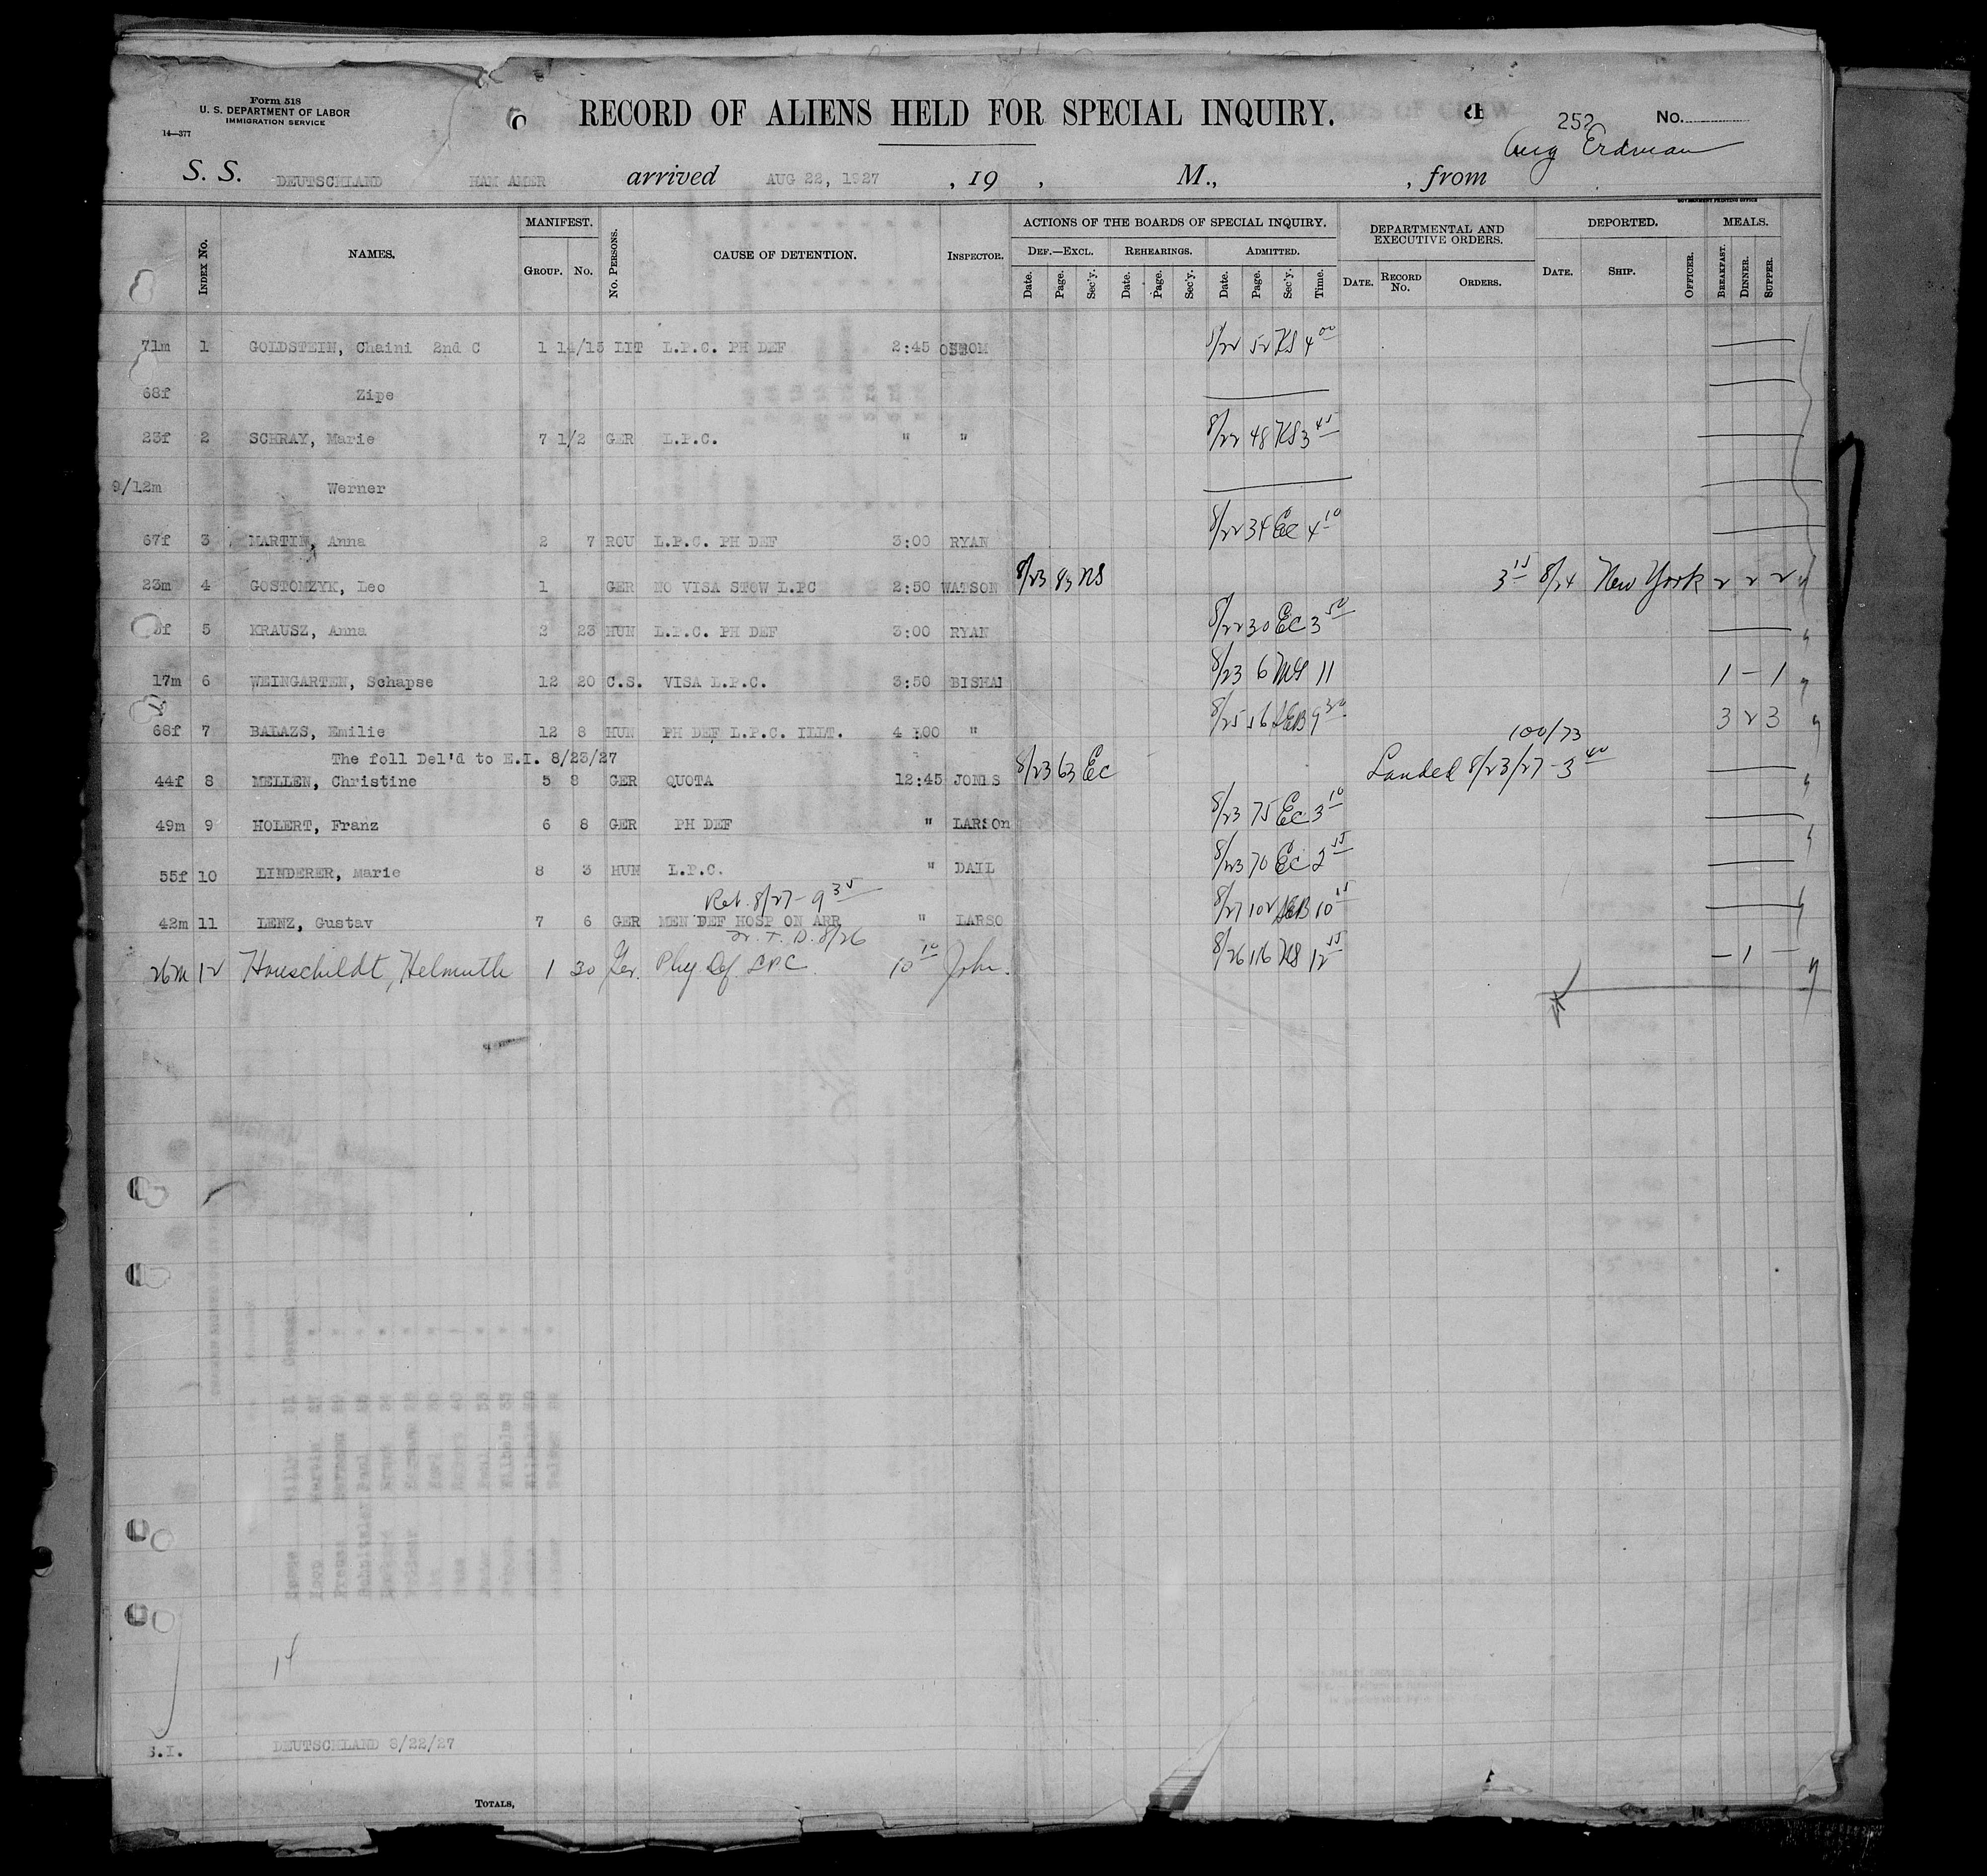 Form 518
U. S. DEPARTMENT OF LABOR
IMMIGRATION SERVICE
14—377
RECORD OF ALIENS HELD FOR SPECIAL INQUIRY.
252 No.
Aug Erdman
S. S. DEUTSCHLAND HAM AMER arrived AUG 22, 1927 , 19 , M., , from
GOVERNMENT PRINTING OFFICE
INDEX No. NAMES. MANIFEST. GROUP. No. No. PERSONS. CAUSE OF DETENTION. INSPECTOR. ACTIONS OF THE BOARDS OF SPECIAL INQUIRY. DEF.—EXCL. REHEARINGS. ADMITTED. DEPARTMENTAL AND EXECUTIVE ORDERS. DEPORTED. MEALS.
Date. Page. Sec'y. Date. Page. Sec'y. Date. Page. Sec'y. Time. DATE. RECORD No. ORDERS. DATE. SHIP. OFFICER. BREAKFAST. DINNER. SUPPER.
71m 1 GOLDSTEIN, Chaini 2nd C 1 14/15 LIT L.P.C. PH DEF 2:45 8/22 52 KS 4 00
68f Zipe
23f 2 SCHRAY, Marie 7 1/2 GER L.P.C. " " 8/22 48 KS 3 45
9/12m Werner
67f 3 MARTIN, Anna 2 7 ROU L.P.C. PH DEF 3:00 RYAN 8/22 34 EC 4 10
23m 4 GOSTOMZYK, Leo 1 GER NO VISA STOW L.PC 2:50 WATSON 8/23 83 NS 3 15 8/24 New York 2 2 2
f 5 KRAUSZ, Anna 2 23 HUN L.P.C. PH DEF 3:00 RYAN 8/22 30 EC 3 50
17m 6 WEINGARTEN, Schapse 12 20 C.S. VISA L.P.C. 3:50 BISHAI 8/23 6 11 1 — 1
68f 7 BALAZS, Emilie 12 8 HUN PH DEF L.P.C. ILLT. 4:00 " 8/25 56 AEB 9 30 3 2 3
The foll Del'd to E.I. 8/23/27 100/73
44f 8 MELLEN, Christine 5 8 GER QUOTA 12:45 JONES 8/23 63 EC Landed 8/23/27 - 3 40
49m 9 HOLERT, Franz 6 8 GER PH DEF " LARSOn 8/23 75 EC 3 10
55f 10 LINDERER, Marie 8 3 HUN L.P.C. " DAIL 8/23 70 EC 2 55
Ret. 8/27 - 9 35
42m 11 LENZ, Gustav 7 6 GER MEN DEF HOSP ON ARR " LARSO 8/27 102 AEB 10 15
T. D. 8/26
26m 12 Houschildt, Helmuth 1 30 Ger. Phy Def LPC 10 10 John. 8/26 116 KS 12 55 — 1 —
14
S.I. DEUTSCHLAND 8/22/27
TOTALS,